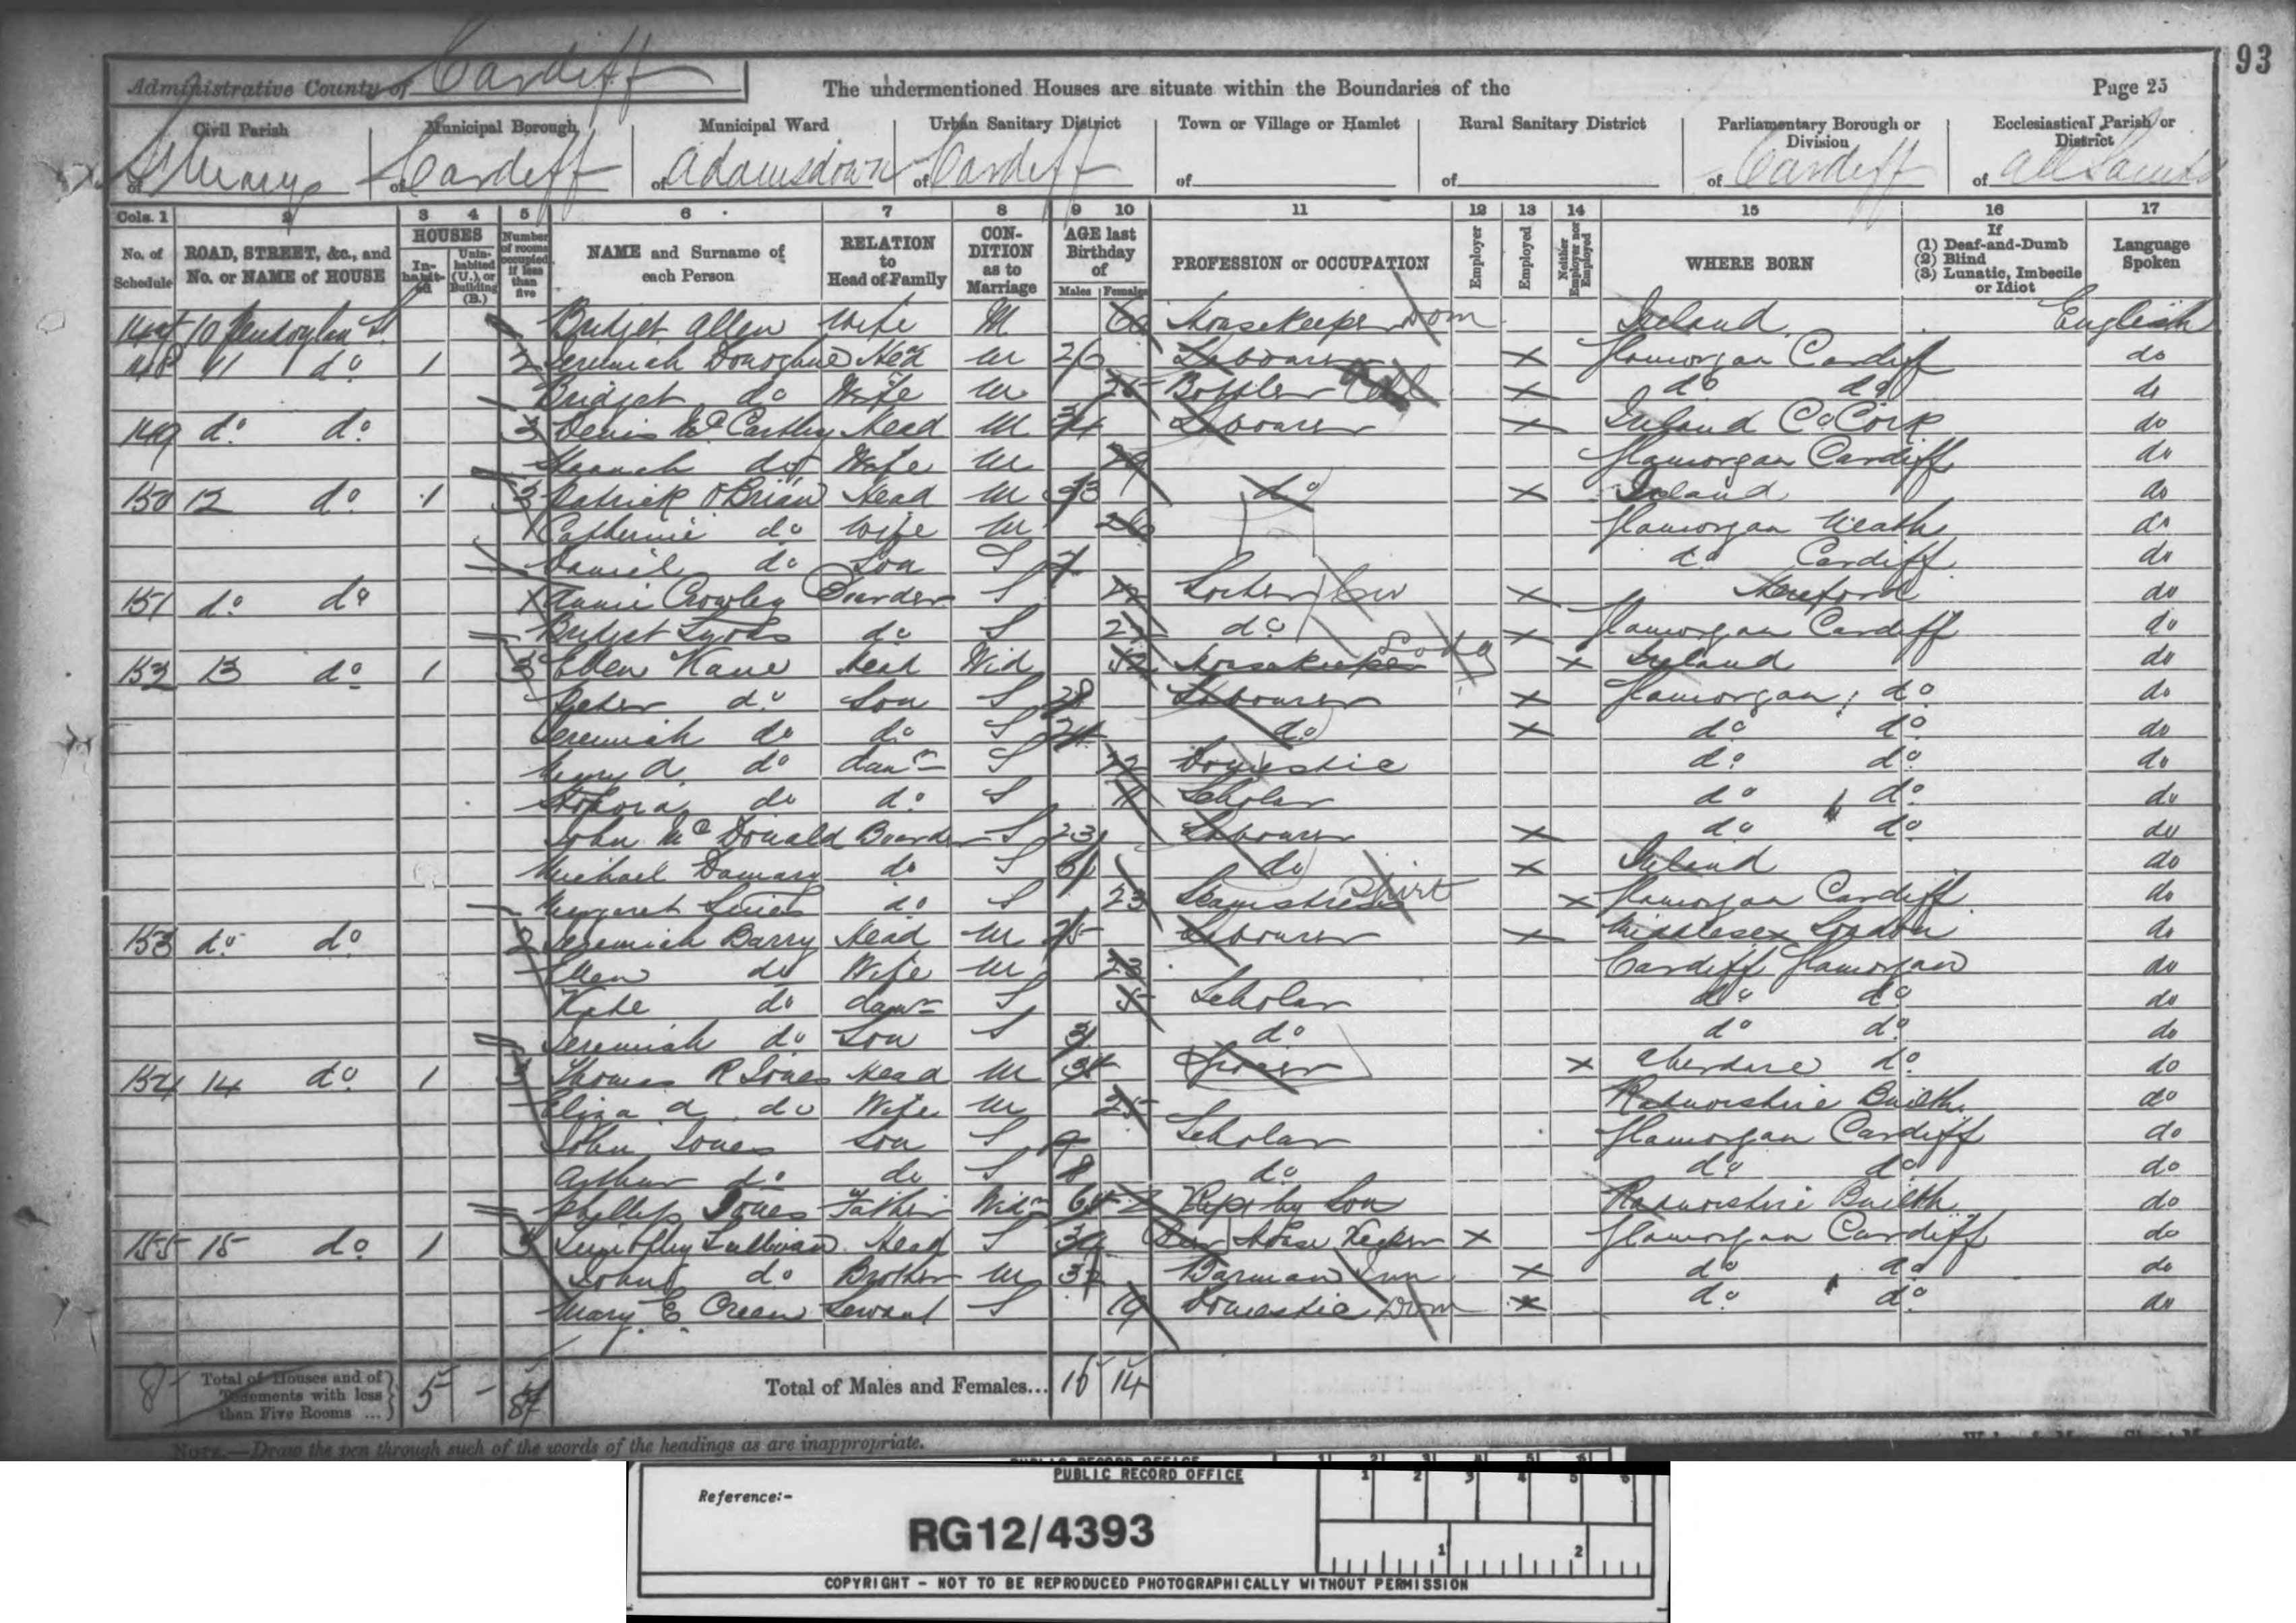 93
Administrative County of Cardiff The undermentioned Houses are situate within the Boundaries of the Page 25
Civil Parish Municipal Borough Municipal Ward Urban Sanitary District Town or Village or Hamlet Rural Sanitary District Parliamentary Borough or Division Ecclesiastical Parish or District
of St Marys of Cardiff of Adamsdown of Cardiff of of of Cardiff of All Saints
Cols. 1 2 3 4 5 6 7 8 9 10 11 12 13 14 15 16 17
No. of Schedule ROAD, STREET, &c., and No. or NAME of HOUSE HOUSES Inhabited Uninhabited (U.), or Building (B.) Number of rooms occupied if less than five NAME and Surname of each Person RELATION to Head of Family CONDITION as to Marriage AGE last Birthday of Males Females PROFESSION or OCCUPATION Employer Employed Neither Employer nor Employed WHERE BORN If (1) Deaf-and-Dumb (2) Blind (3) Lunatic, Imbecile or Idiot Language Spoken
10 Pendoylan St Bridget Allen Wife M 60 Housekeeper Dom Ireland English
148 11 do 1 2 Jeremiah Donoghue Head M 26 Labourer X Glamorgan Cardiff do
Bridget do Wife M 25 Bottler X do do do
149 do do 3 Denis McCarthy Head M 34 Labourer X Ireland Co Cork do
Hannah do Wife M 29 Glamorgan Cardiff do
150 12 do 1 3 Patrick O'Brian Head M 33 do X Ireland do
Catherine do Wife M 26 Glamorgan Neath do
Daniel do Son S 7 do Cardiff do
151 do do 1 Annie Crowley Boarder S 22 X Hereford do
Bridget Lyons do S do X Glamorgan Cardiff do
152 13 do 1 3 Ellen Kane Head Wid 52 Housekeeper Lodg X Ireland do
Peter do Son S 28 Labourer X Glamorgan do do
Jeremiah do do S 24 do X do do do
Mary A do daur S 22 Domestic do do do
do do S 11 Scholar do do do
John McDonald Boarder S 23 Labourer X do do do
Michael do S do X Ireland do
Margaret do S 23 Seamstress Shirt X Glamorgan Cardiff do
153 do do 2 Jeremiah Barry Head M 25 Labourer X Middlesex London do
Ellen do Wife M 23 Cardiff Glamorgan do
Kate do daur S 5 Scholar do do do
Jeremiah do Son S 3 do do do do
154 14 do 1 3 Thomas R Jones Head M Grocer X Aberdare do do
Eliza A do Wife M 25 Radnorshire Builth do
John Jones Son S 9 Scholar Glamorgan Cardiff do
Arthur do do S 8 do do do do
Phillip Jones Father Widr Kept by Son Radnorshire Builth do
155 15 do 1 Timothy Sullivan Head S 39 Beer House Keeper X Glamorgan Cardiff do
John do Brother M 32 Barman Inn X do do do
Mary E Creen Servant S 19 Domestic Dom X do do do
8 Total of Houses and of Tenements with less than Five Rooms ... 5 - Total of Males and Females... 16 14
NOTE.—Draw the pen through such of the words of the headings as are inappropriate.
PUBLIC RECORD OFFICE
1 2 3 4 5 6
Reference:-
RG12/4393
1 2
COPYRIGHT - NOT TO BE REPRODUCED PHOTOGRAPHICALLY WITHOUT PERMISSION